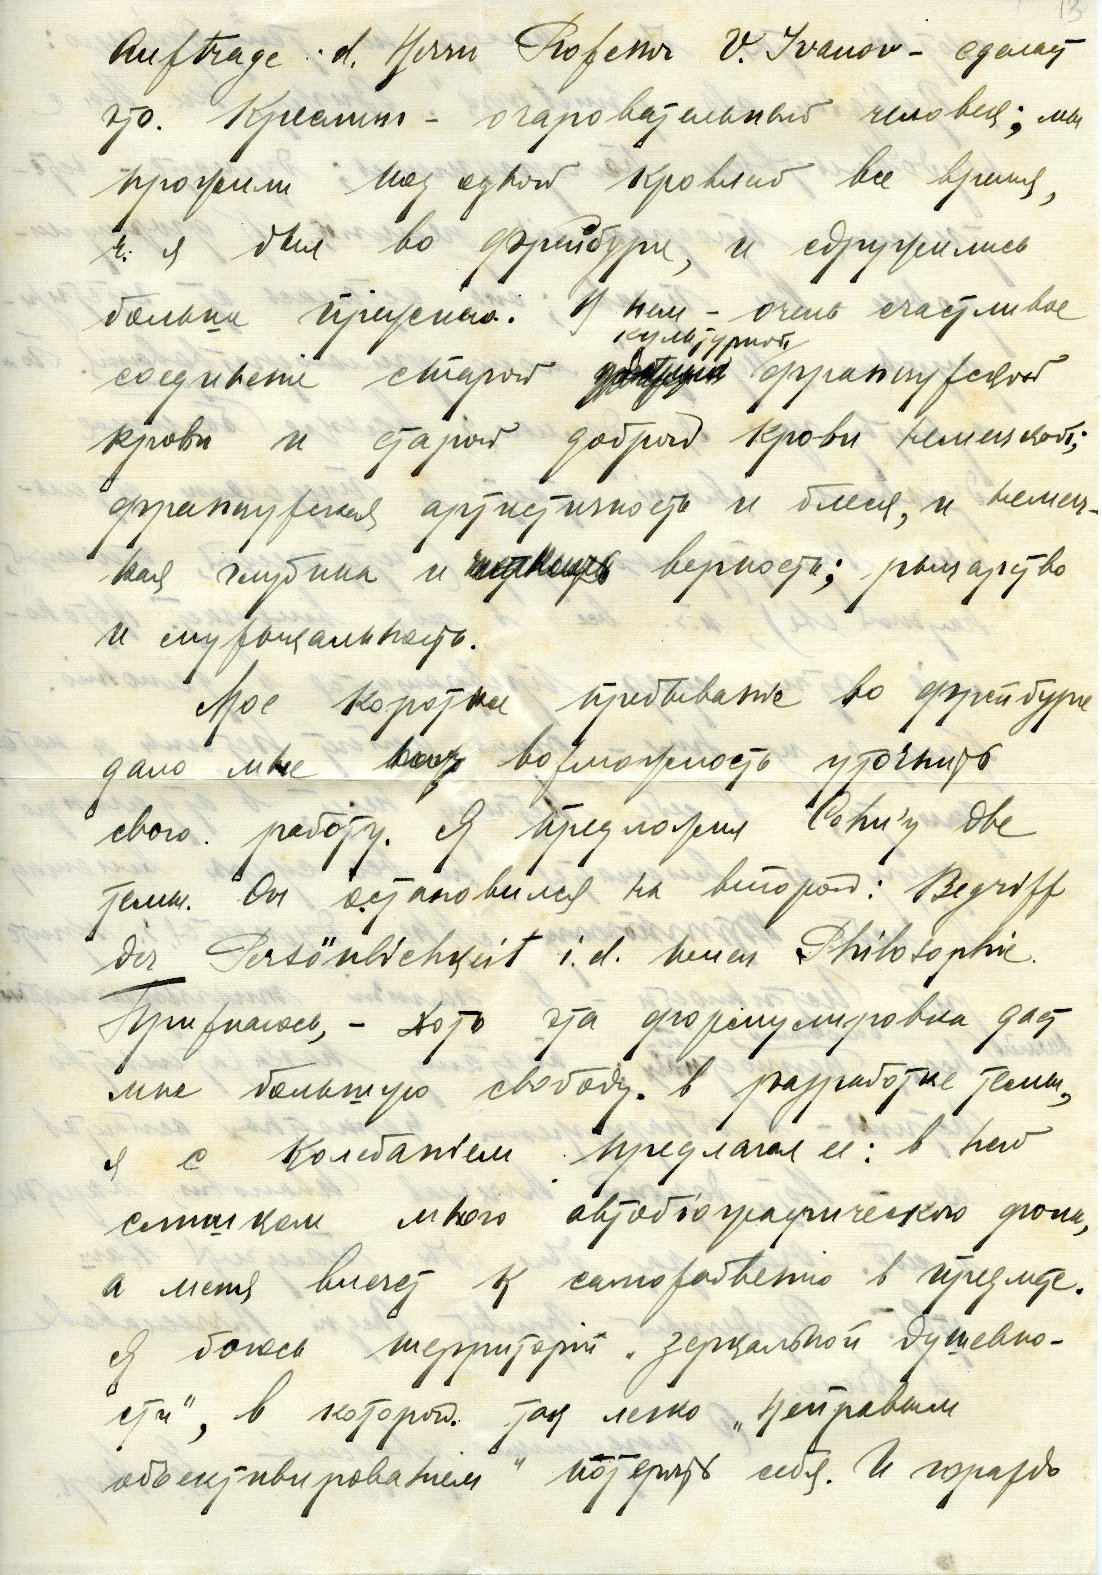 13
Auftrage d. Herrn Professor V. Ivanov - сделать
это. Креслинг - очаровательный человек; мы
прожили под одной кровлей все время,
ч. я был во Фрейбурге, и сдружились
больше прежняго. В нем - очень счастливое
культурной
соединенiе старой французской
крови и старой доброй крови немецкой;
французская артистичность и блеск, и немец-
кая глубина и верность; рыцарство
и музыкальность.
Мое короткое пребыванiе во Фрейбурге
дало мне возможность уточнить
свою работу. Я предложил Cohn'у две
темы. Он остановился на второй: Begriff
der Persönlichkeit i. d. neuen Philosophie.
Признаюсь, - хоть эта формулировка дает
мне большую свободу в разработке темы,
я с колебанiем предлагал ее: в ней
слишком много автобiографическаго фона,
а меня влечет к самозабвенiю в предмете.
Я боюсь территорiи "зеркальной душевно-
сти", в которой так легко "неправым
объективированием" потерять себя. И гораздо